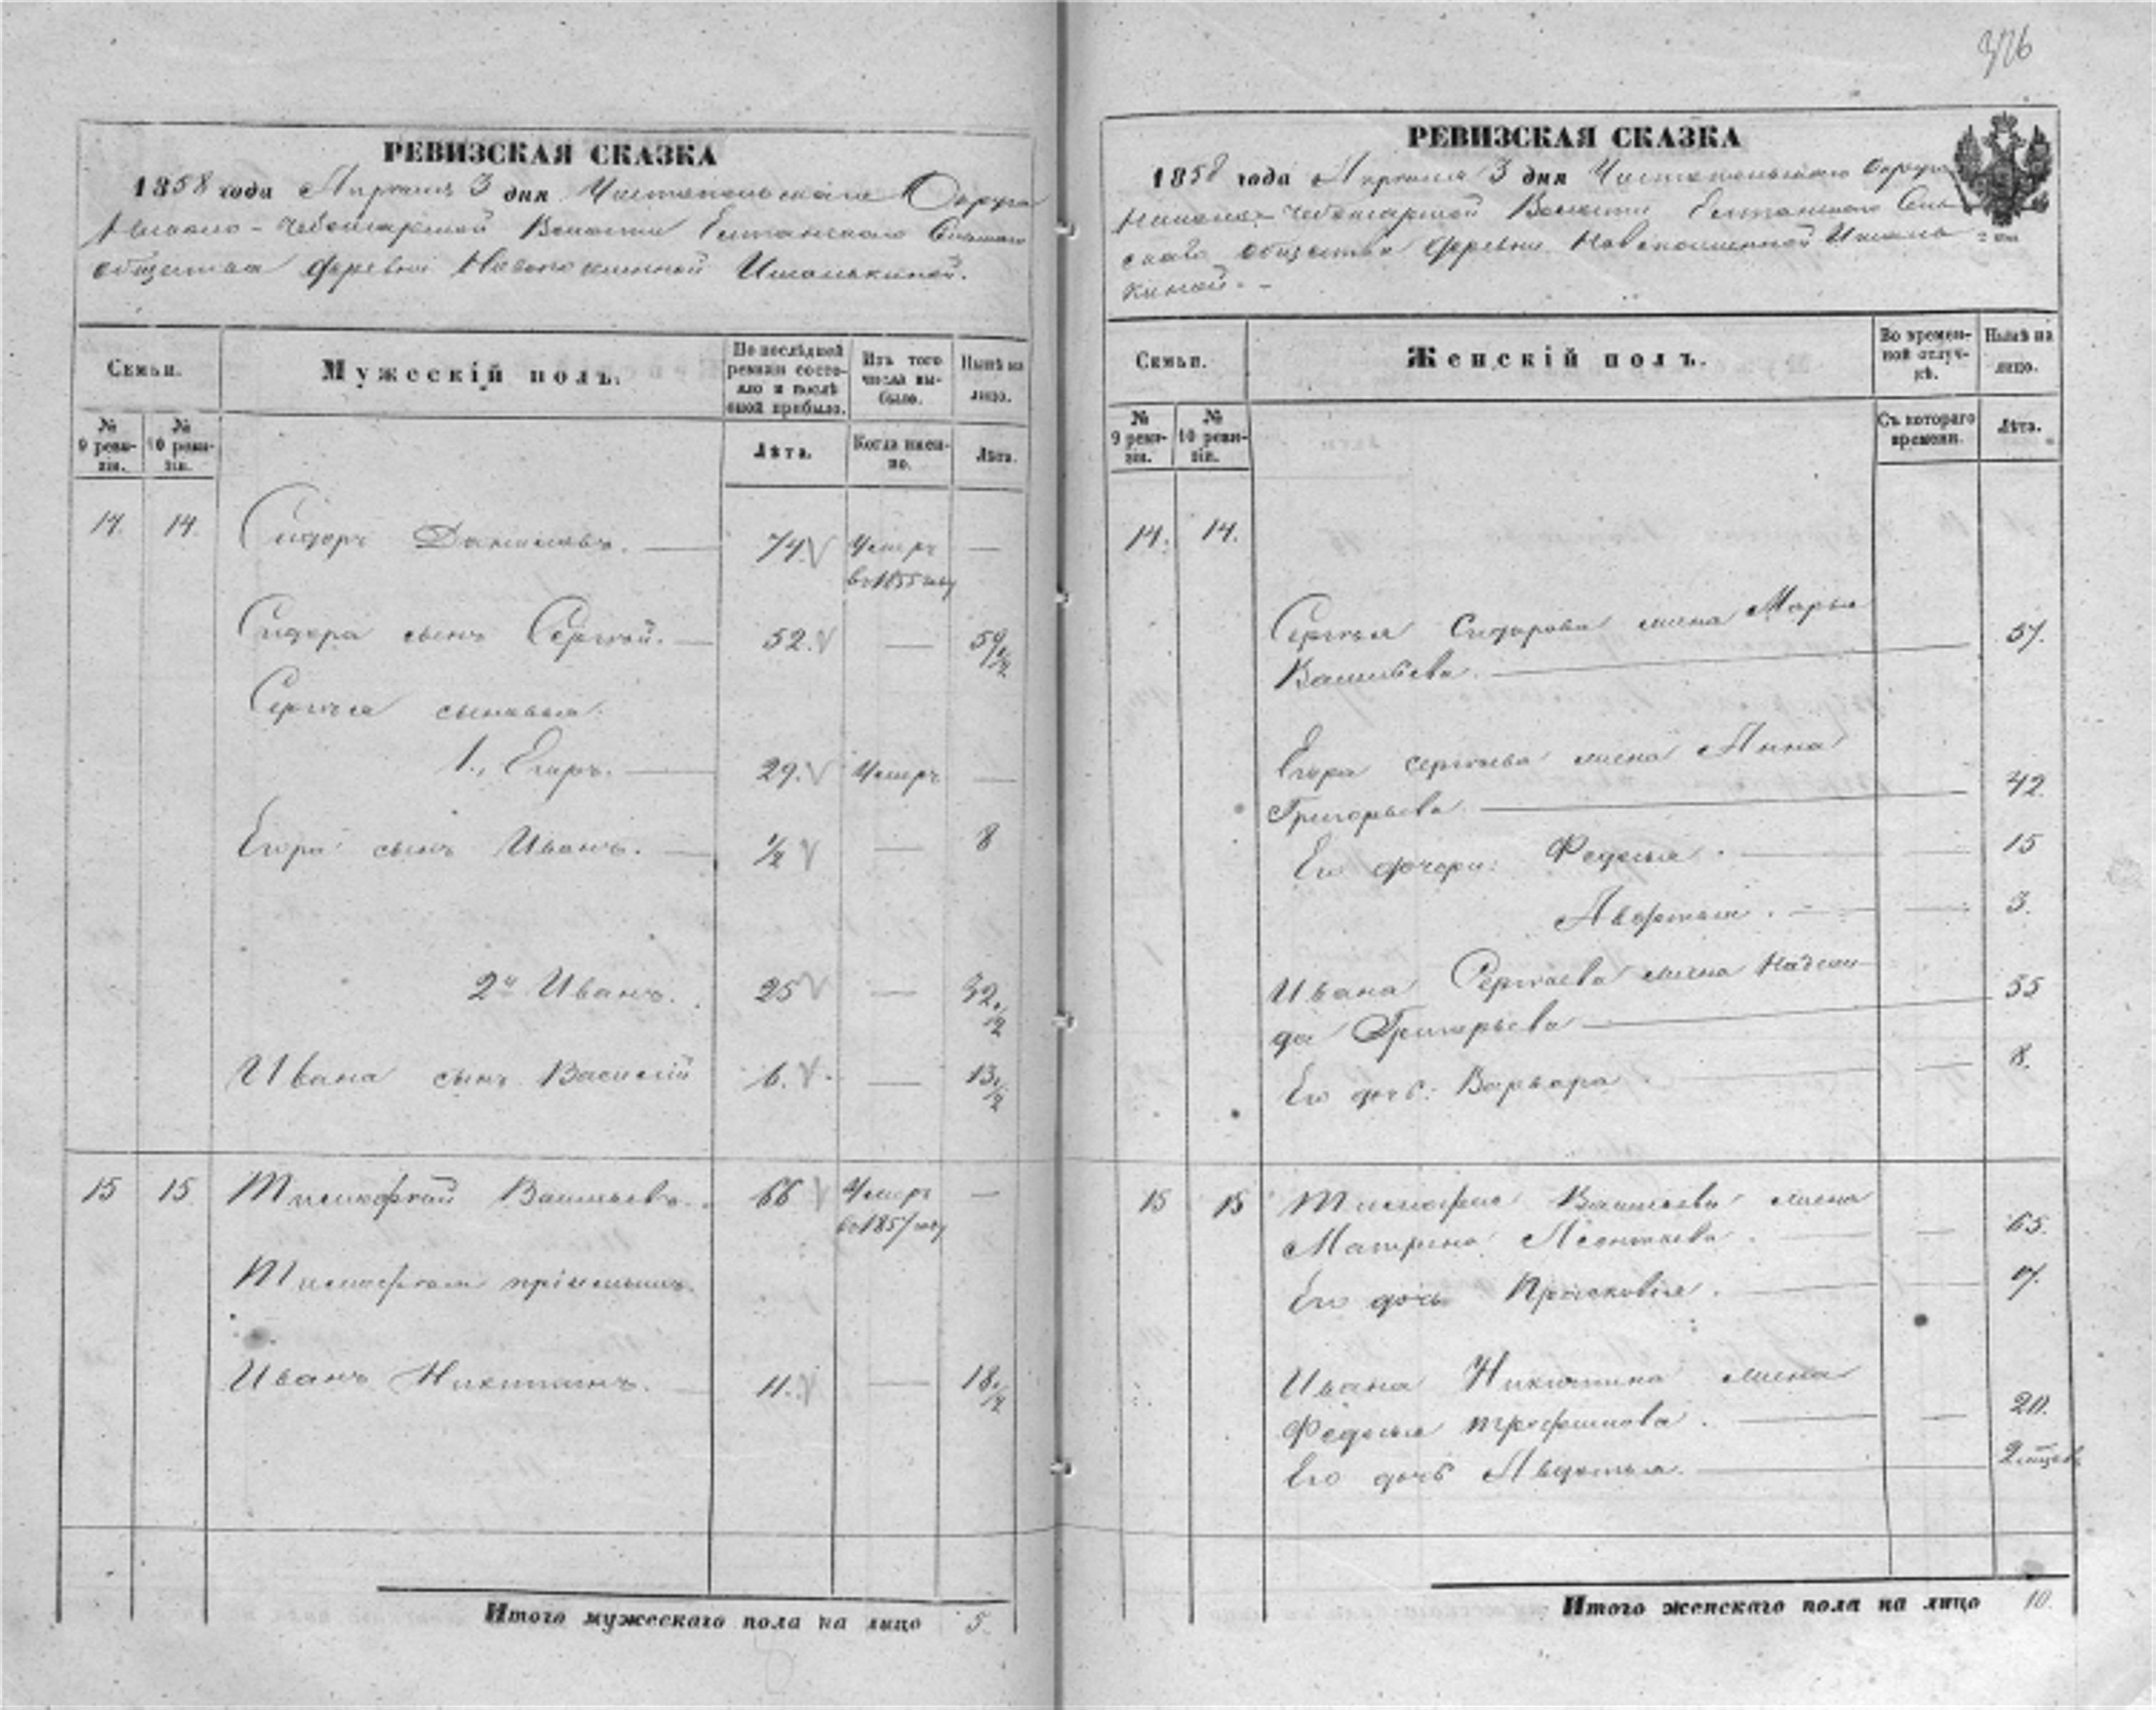 326
РЕВИЗСКАЯ СКАЗКА
1858 года Апреля 3 дня Чистопольскаго Округа
Чебоксарской Волости Елтанскаго Сельскаго
общества деревни Новопошенной Ишалькиной.
Семьи.
Мужескій полъ.
По послѣдней ревизіи состояло и послѣ оной прибыло.
Изъ того числа выбыло.
Нынѣ на лицо.
№ 9 ревизіи.
№ 10 ревизіи.
Лѣта.
Когда именно.
Лѣта.
14. 14. Сидоръ Даниловъ. — 74 Умеръ —
въ 1855 году
Сидора сынъ Сергѣй. — 52. — 59 1/2
Сергѣя сыновья.
1., Егоръ. — 29. Умеръ —
Егора сынъ Иванъ. — 1/2 — 8
2й Иванъ. 25 — 32. 1/2
Ивана сынъ Василій 6. — 13. 1/2
15 15. Тимофѣй Васильевъ. 66 Умеръ —
въ 1857 году
Тимофѣя пріемышъ
Иванъ Никитинъ. 11. — 18. 1/2
Итого мужескаго пола на лицо 5
РЕВИЗСКАЯ СКАЗКА
1858 года Апреля 3 дня Чистопольскаго Округа
Чебоксарской Волости Елтанскаго Сель-
скаго общества деревни Новопошенной Ишаль-
киной. -
Семьи.
Женскій полъ.
Во временной отлучкѣ.
Нынѣ на лицо.
№ 9 ревизіи.
№ 10 ревизіи.
Съ котораго времени.
Лѣта.
14. 14.
Сергѣя Сидорова жена Марья
Васильева. — 57.
Егора Сергѣева жена Анна
Григорьева — 42.
Его дочери: Федосья. — 15
Авдотья. — 3.
Ивана Сергѣева жена Надеж-
да Григорьева — 35
Его дочь: Варвара. — 8.
15 15 Тимофея Васильева жена
Матрена Леонтьева. — 65.
Его дочь Прасковія. — 17.
Ивана Никитина жена
Федосья Трофимова. — 20.
Его дочь Авдотья. — 2 мѣсяц
Итого женскаго пола на лицо 10.